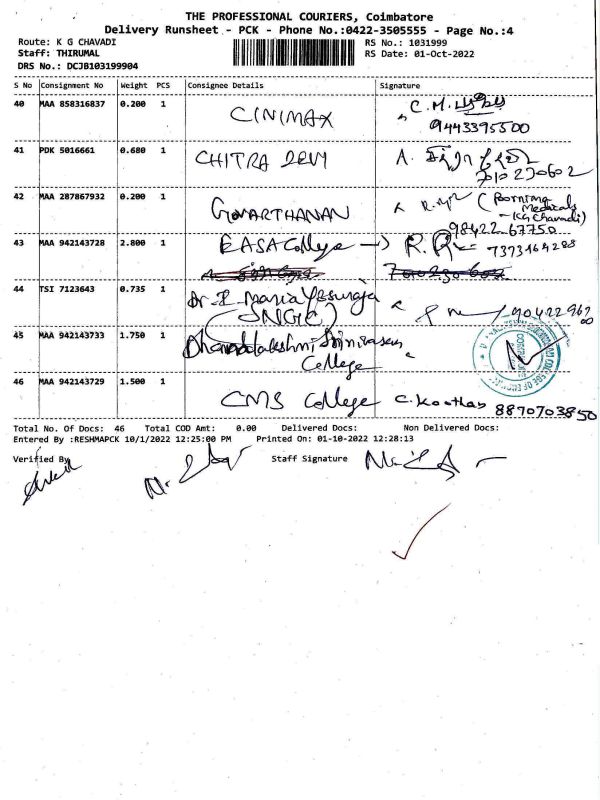 THE PROFESSIONAL COURIERS, Coimbatore
Delivery Runsheet - PCK - Phone No.:0422-3505555 - Page No.:4
Route: K G CHAVADI
RS No.: 1031999
Staff: THIRUMAL
RS Date: 01-Oct-2022
DRS No.: DCJB103199904
S No Consignment No Weight PCS Consignee Details Signature
40 MAA 858316837 0.200 1 CINIMAX C.M.
9443395500
41 PDK 5016661 0.680 1 CHITRA DEVI A.
7010270602
42 MAA 287867932 0.200 1 GOVARTHANAN (Borning Medicals
- KG Chavadi)
98422 67750
43 MAA 942143728 2.800 1 EASA College → R.R 7373164288
44 TSI 7123643 0.735 1 Dr. P. Maria Yesuraja
(JNGC)
45 MAA 942143733 1.750 1 Dhanalakshmi Srinivasan
College
46 MAA 942143729 1.500 1 CMS College C. Koothan
8870703850
Total No. Of Docs: 46 Total COD Amt: 0.00 Delivered Docs: Non Delivered Docs:
Entered By :RESHMAPCK 10/1/2022 12:25:00 PM Printed On: 01-10-2022 12:28:13
Verified By Staff Signature